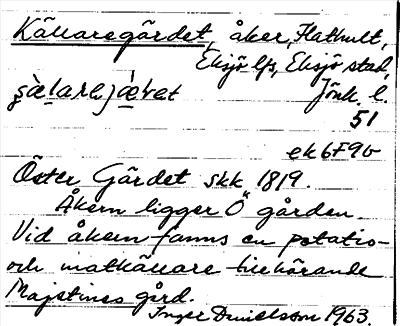 Källaregärdet, åker, Flathult,
Eksjö lfs, Eksjö stad,
Jönk. l.
51
ek 6F9b
Öster Gärdet skk 1819.
Åkern ligger Ö gården.
Vid åkern fanns en potatis-
och matkällare tillhörande
Majstines gård.
Inger Danielsson 1963.